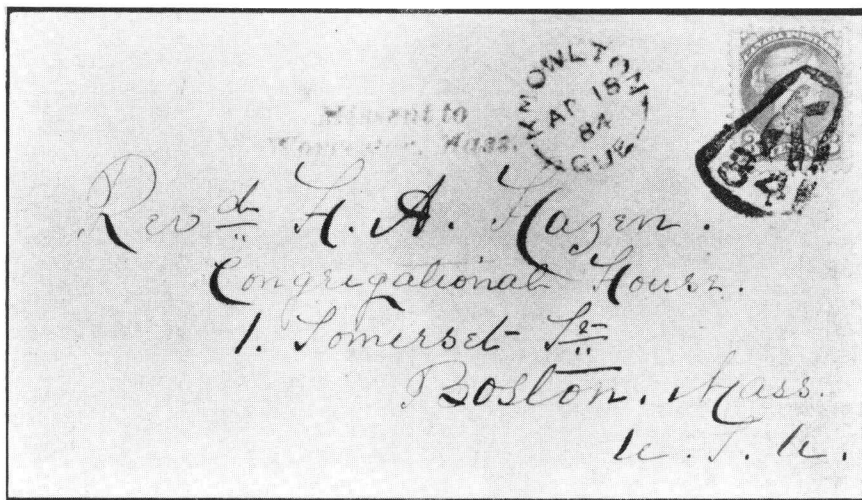 CANADA POSTAGE
KNOWLTON
AP 18
84
QUE
Missent to
Worcester, Mass.
Revd H. A. Hazen.
Congregational House.
1. Somerset St
Boston. Mass.
U. S. A.